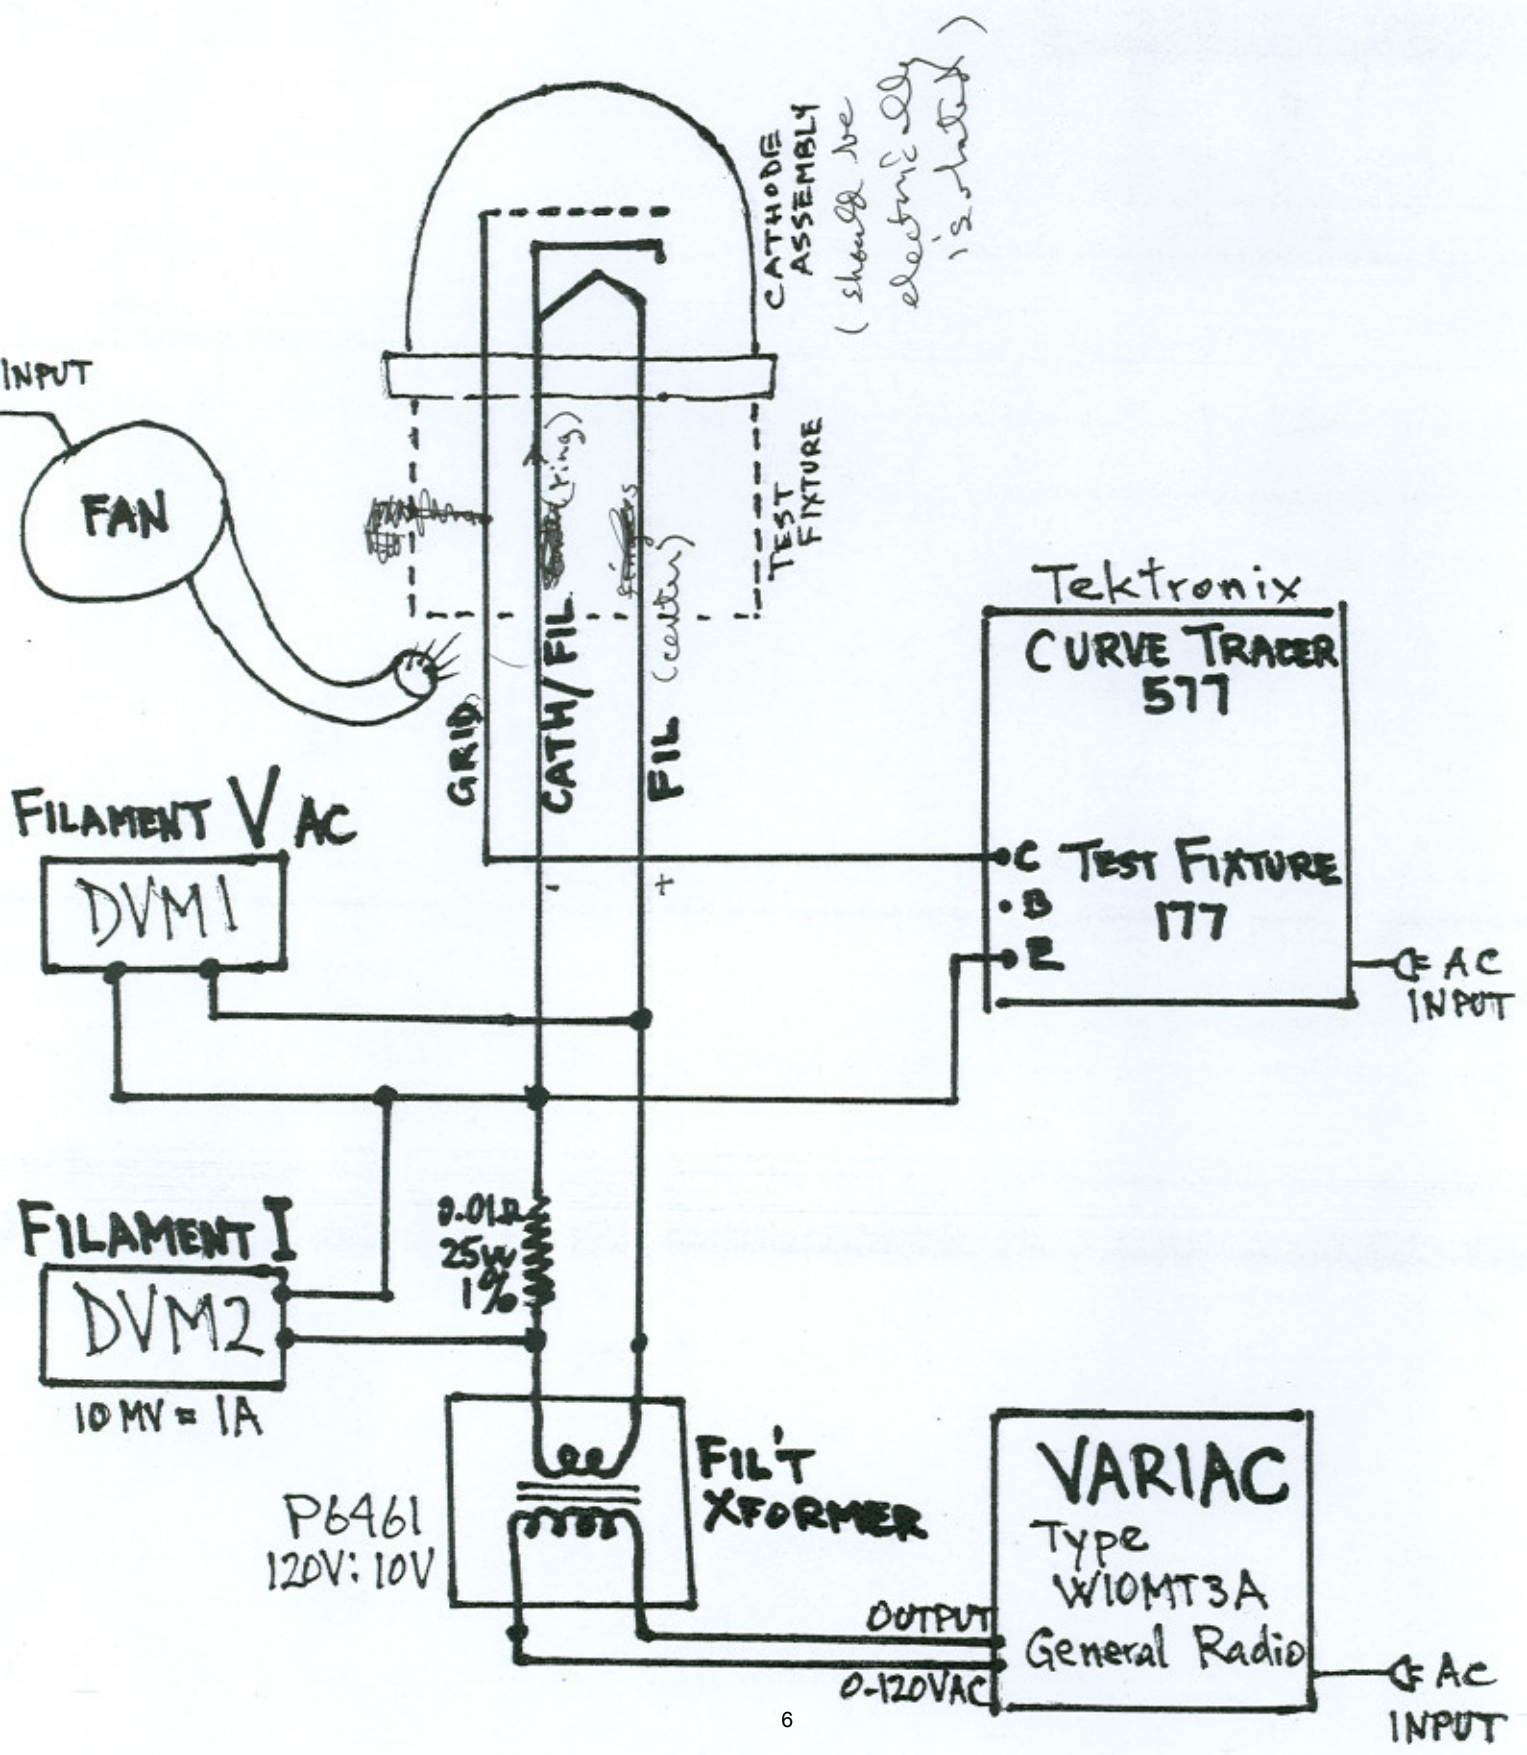 CATHODE
ASSEMBLY
(should be
electrically
isolated)
INPUT
FAN
TEST
FIXTURE
(ring)
(center)
GRID
CATH/FIL
FIL
-
+
Tektronix
CURVE TRACER
577
C TEST FIXTURE
B 177
E
AC
INPUT
FILAMENT V AC
DVM1
FILAMENT I
DVM2
10 MV = 1A
0.01Ω
25W
1%
FIL'T
XFORMER
P6461
120V: 10V
VARIAC
Type
W10MT3A
General Radio
OUTPUT
0-120VAC
AC
INPUT
6